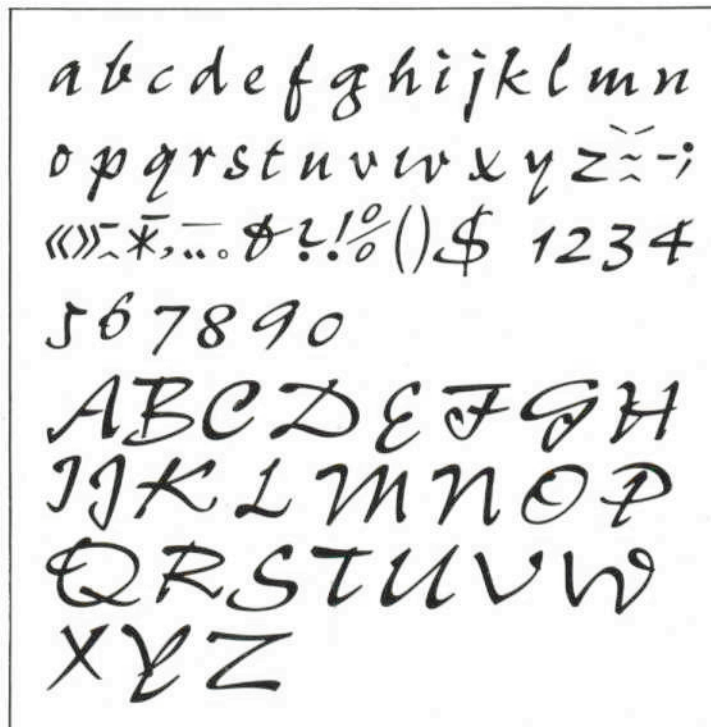 a b c d e f g h i j k l m n
o p q r s t u v w x y z ˘ ~ ^ - ;
« » * , . . & ? ! % ( ) $ 1 2 3 4
5 6 7 8 9 0
A B C D E F G H
I J K L M N O P
Q R S T U V W
X Y Z